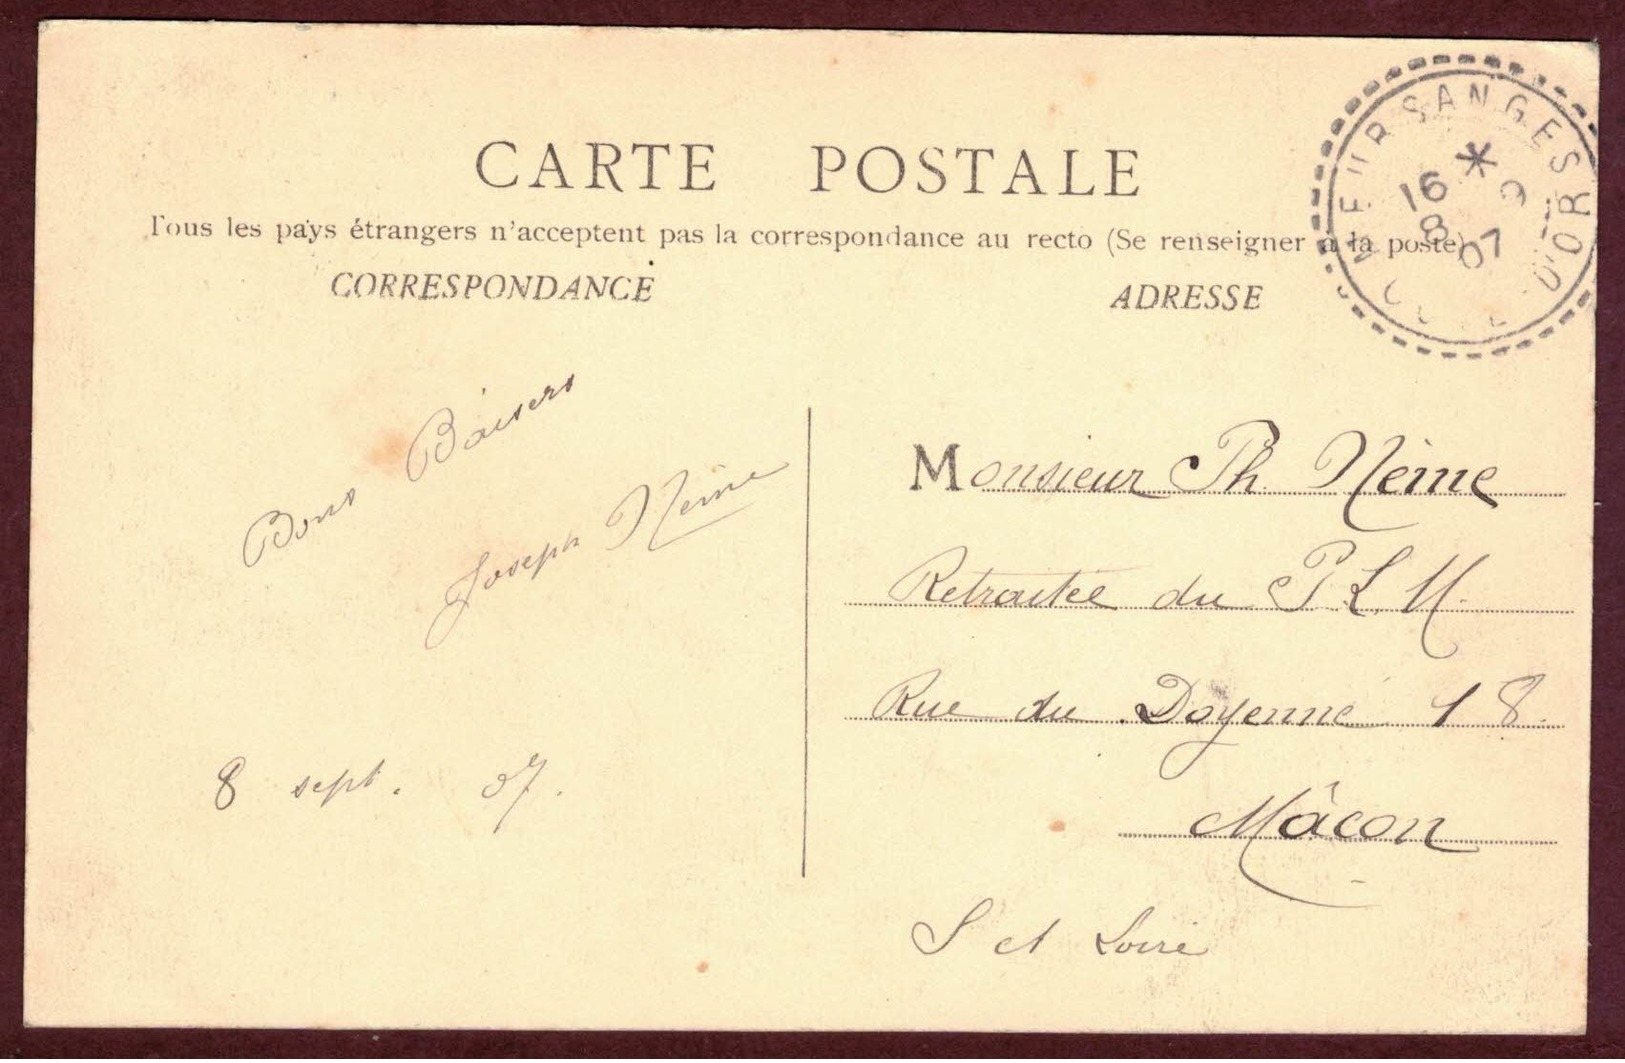 CARTE POSTALE
Tous les pays étrangers n'acceptent pas la correspondance au recto (Se renseigner à la poste)
CORRESPONDANCE
ADRESSE
MEURSANGES
16 *
8 9
07
D'OR
Bons Baisers
Joseph Neime
8 sept. 07.
Monsieur Ph Neime
Retraitée du P L M.
Rue du Doyenné 18.
Mâcon
S et Loire